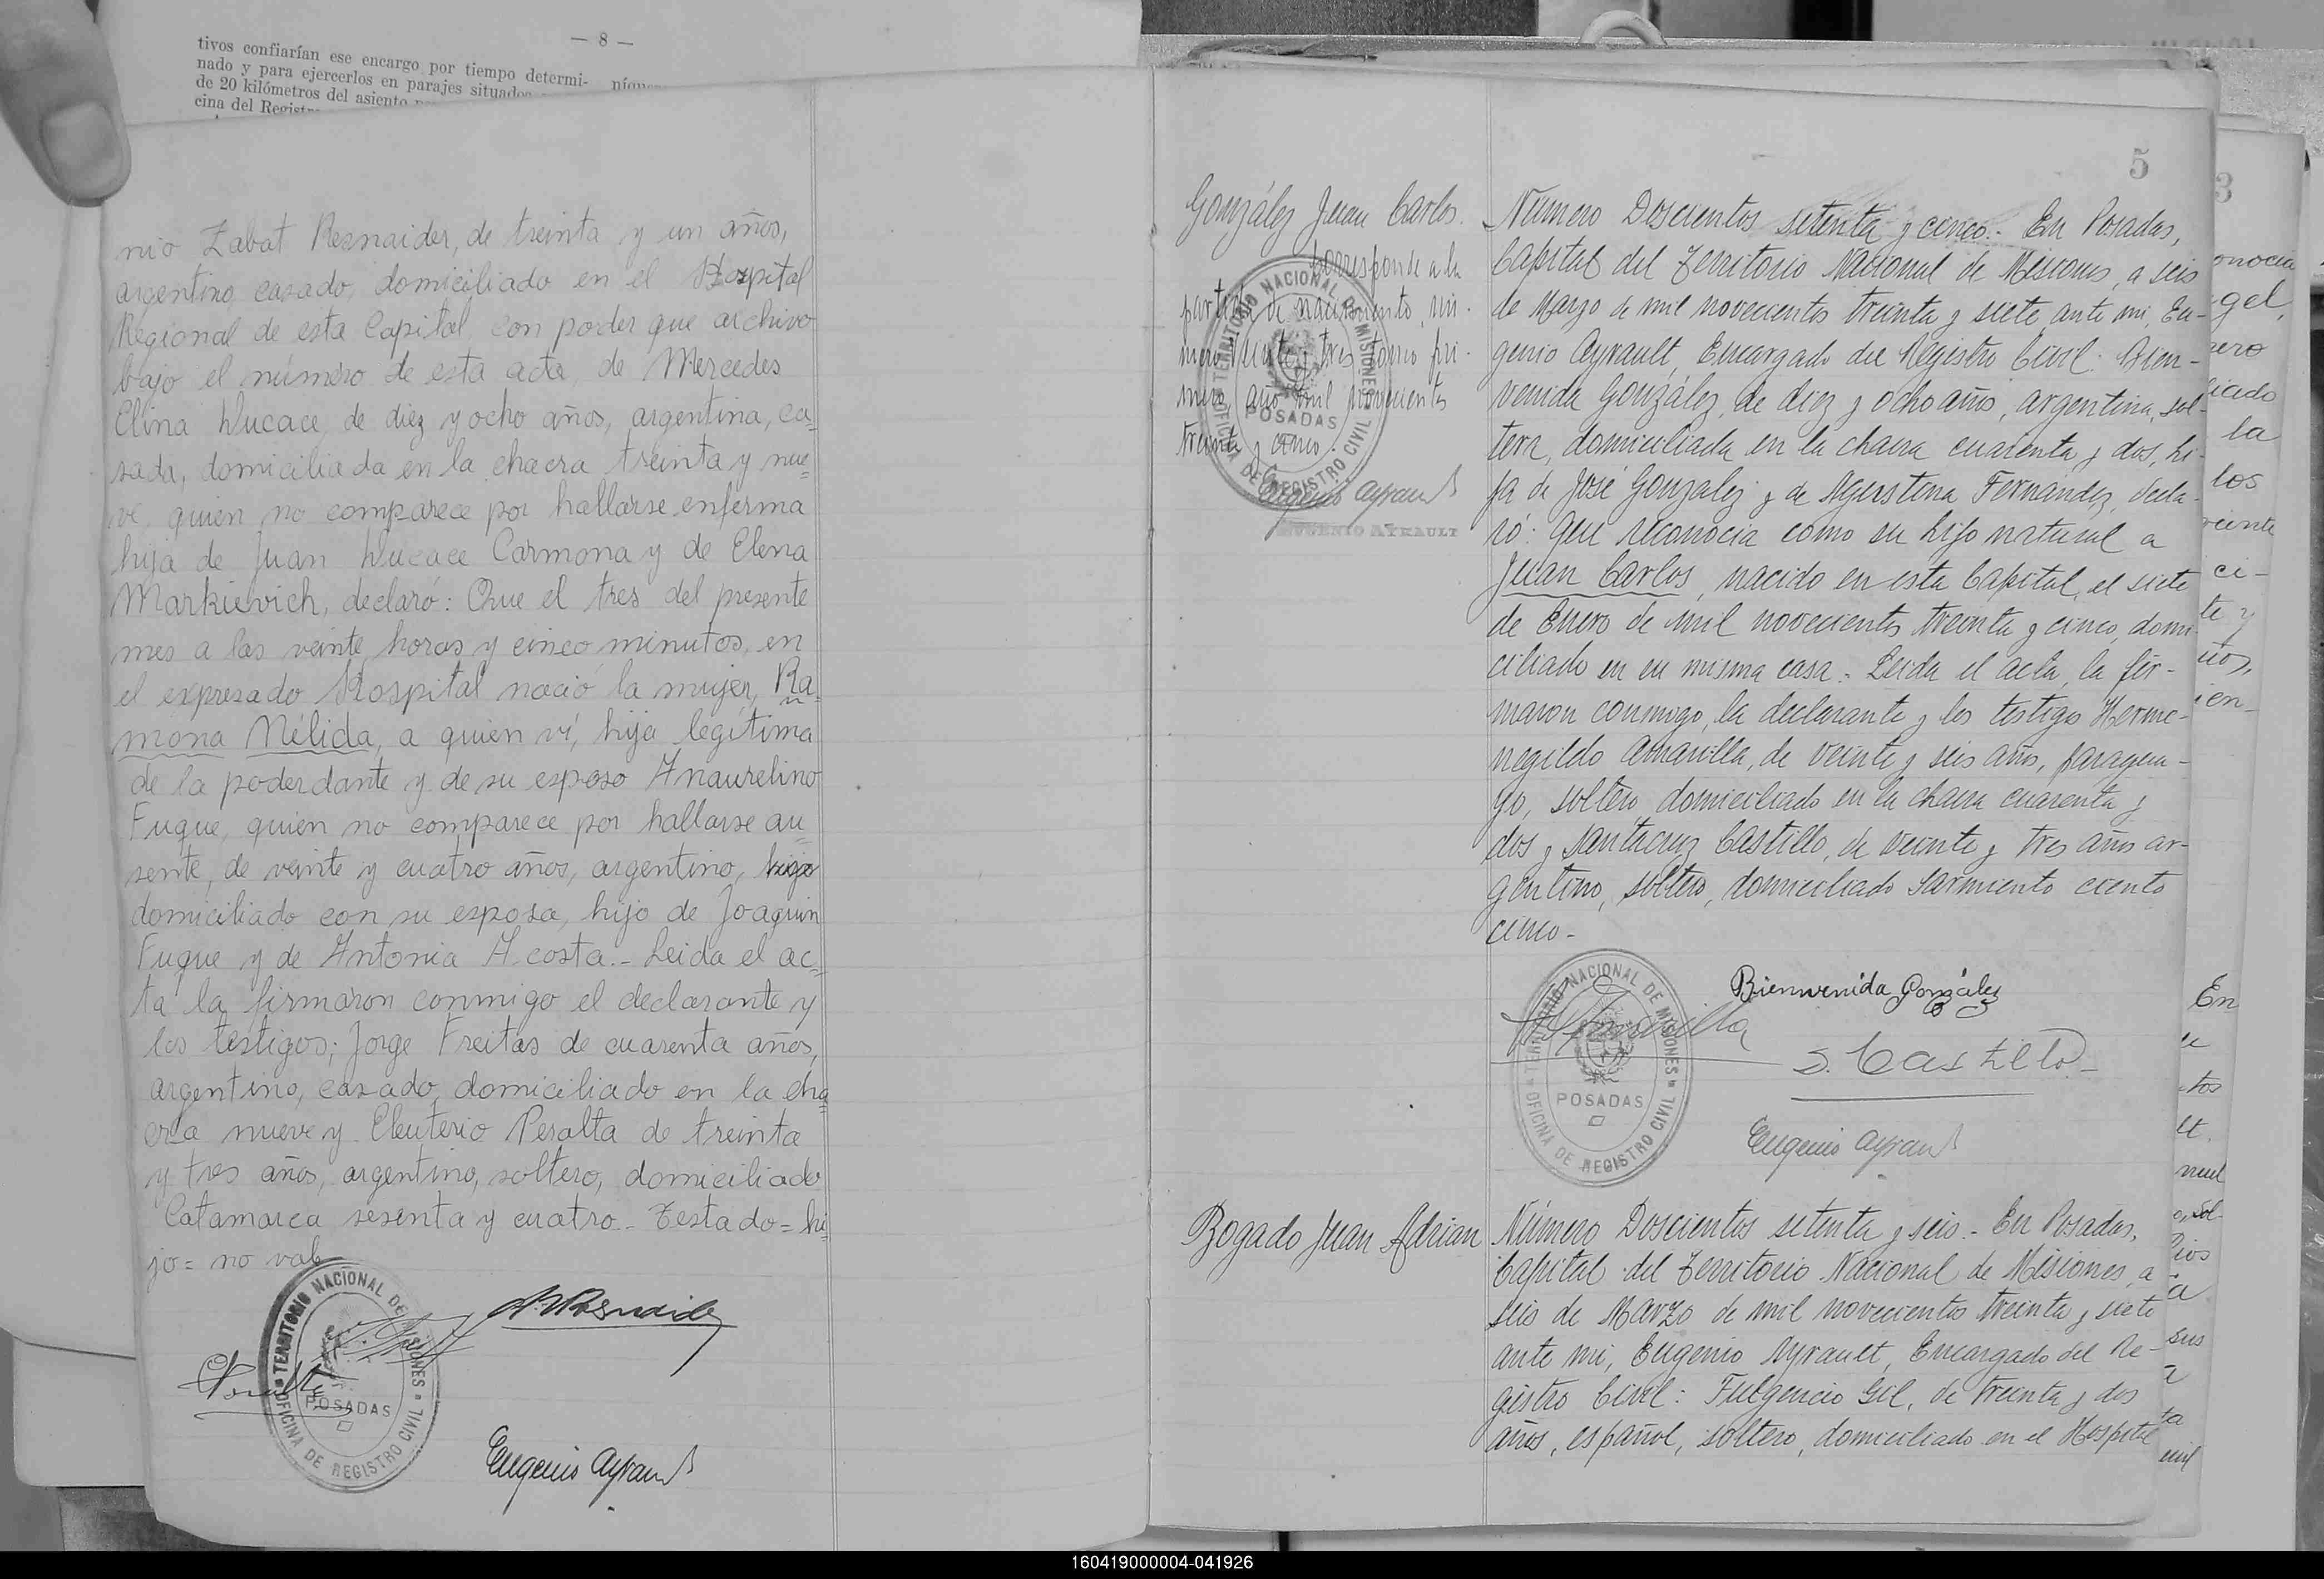 — 8 —
tivos confiarían ese encargo por tiempo determi-
nado y para ejercerlos en parajes situados
de 20 kilómetros del asiento
cina del Registr
nio Zabat Resnaider, de treinta y un años,
argentino, casado, domiciliado en el Hospital
Regional de esta Capital, con poder que archivo
bajo el número de esta acta, de Mercedes
Elina Ducace, de diez y ocho años, argentina, ca-
sada, domiciliada en la chacra treinta y nue-
ve, quien no comparece por hallarse enferma
hija de Juan Ducace Carmona y de Elena
Markievich, declaró: Que el tres del presente
mes a las veinte horas y cinco minutos, en
el expresado Hospital nació la mujer, Ra-
mona Nélida, a quien ví, hija legítima
de la poderdante y de su esposo Anaurelino
Fuque, quien no comparece por hallarse au-
sente, de veinte y cuatro años, argentino, hijo
domiciliado con su esposa, hijo de Joaquin
Fuque y de Antonia Acosta.- Leida el ac-
ta la firmaron conmigo el declarante y
los testigos; Jorge Freitas de cuarenta años,
argentino, casado, domiciliado en la cha-
cra nueve y Eleuterio Peralta de treinta
y tres años, argentino, soltero, domiciliado
Catamarca sesenta y cuatro.- Testado= hi-
jo= no vale
TERRITORIO NACIONAL DE MISIONES
POSADAS
OFICINA DE REGISTRO CIVIL
Eugenio Ayrault
5
González Juan Carlos.
Corresponde a la
partida de nacimiento nú-
mero veinte y tres tomo pri-
mero, año mil novecientos
treinta y cinco.
TERRITORIO NACIONAL DE MISIONES
POSADAS
OFICINA DE REGISTRO CIVIL
Eugenio Ayrault
EUGENIO AYRAULT
Número Doscientos setenta y cinco.- En Posadas,
Capital del Territorio Nacional de Misiones, a seis
de Marzo de mil novecientos treinta y siete ante mi, Eu-
genio Ayrault, Encargado del Registro Civil: Bien-
venida González, de diez y ocho años, argentina, sol-
tera, domiciliada en la chacra cuarenta y dos, hi-
ja de José Gonzalez y de Agustina Fernández, decla-
ró: Que reconocia como su hijo natural a
Juan Carlos, nacido en esta Capital, el siete
de Enero de mil novecientos treinta y cinco, domi-
ciliado en su misma casa.- Leida el acta, la fir-
maron conmigo, la declarante y los testigos Herme-
negildo Amarilla, de veinte y seis años, paragua-
yo, soltero, domiciliado en la chacra cuarenta y
dos y Santacruz Castillo, de veinte y tres años ar-
gentino, soltero, domiciliado Sarmiento ciento
cinco-
Bienvenida González
S. Castillo
TERRITORIO NACIONAL DE MISIONES
POSADAS
OFICINA DE REGISTRO CIVIL
Eugenio Ayrault
Bogado Juan Adrian
Número Doscientos setenta y seis.- En Posadas,
Capital del Territorio Nacional de Misiones, a
seis de Marzo de mil novecientos treinta y siete
ante mi, Eugenio Ayrault, Encargado del Re-
gistro Civil: Fulgencio Gil, de treinta y dos
años, español, soltero, domiciliado en el Hospital
3
gel,
la
los
ci-
te y
ien-
En
sus
160419000004-041926